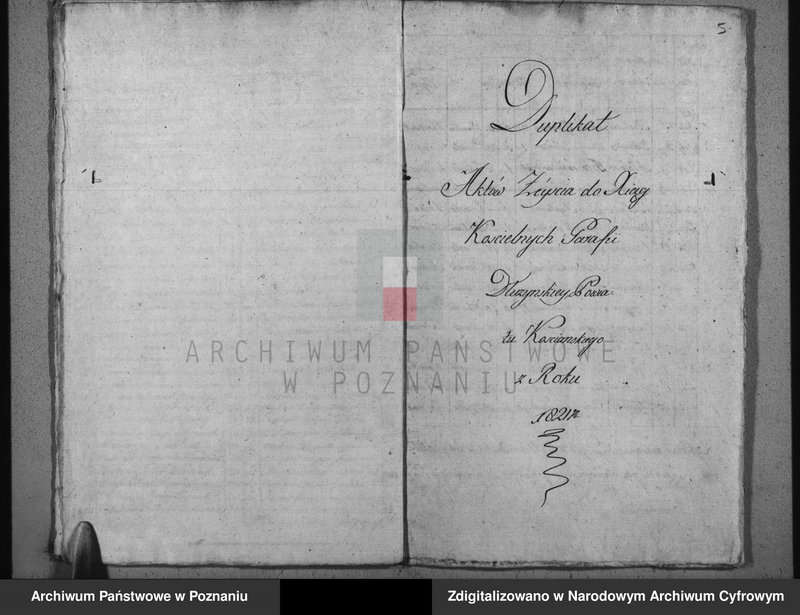 5
Duplikat
Aktów Zeyscia do Xiąg
Koscielnych Parafii
Dłużynskiey Powia-
tu Kościanskiego
z Roku
1821 r
ARCHIWUM PAŃSTWOWE
W POZNANIU
Archiwum Państwowe w Poznaniu
Zdigitalizowano w Narodowym Archiwum Cyfrowym